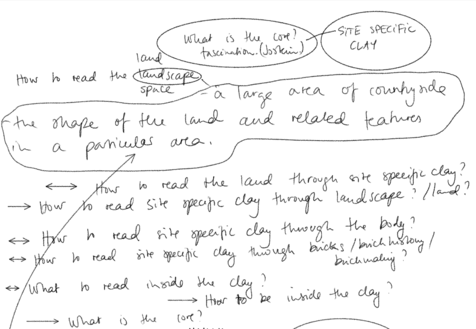 What is the core?
fascination. (Joskin)
SITE SPECIFIC
CLAY
land
How to read the landscape
space
- a large area of countryside
- the shape of the land and related features
in a particular area.
↔ How to read the land through site specific clay?
→ How to read site specific clay through landscape? / land?
↔ How to read site specific clay through the body?
↔ How to read site specific clay through bricks / brick history /
brickmaking?
↔ What to read inside the clay?
→ How to be inside the clay?
→ What is the core?